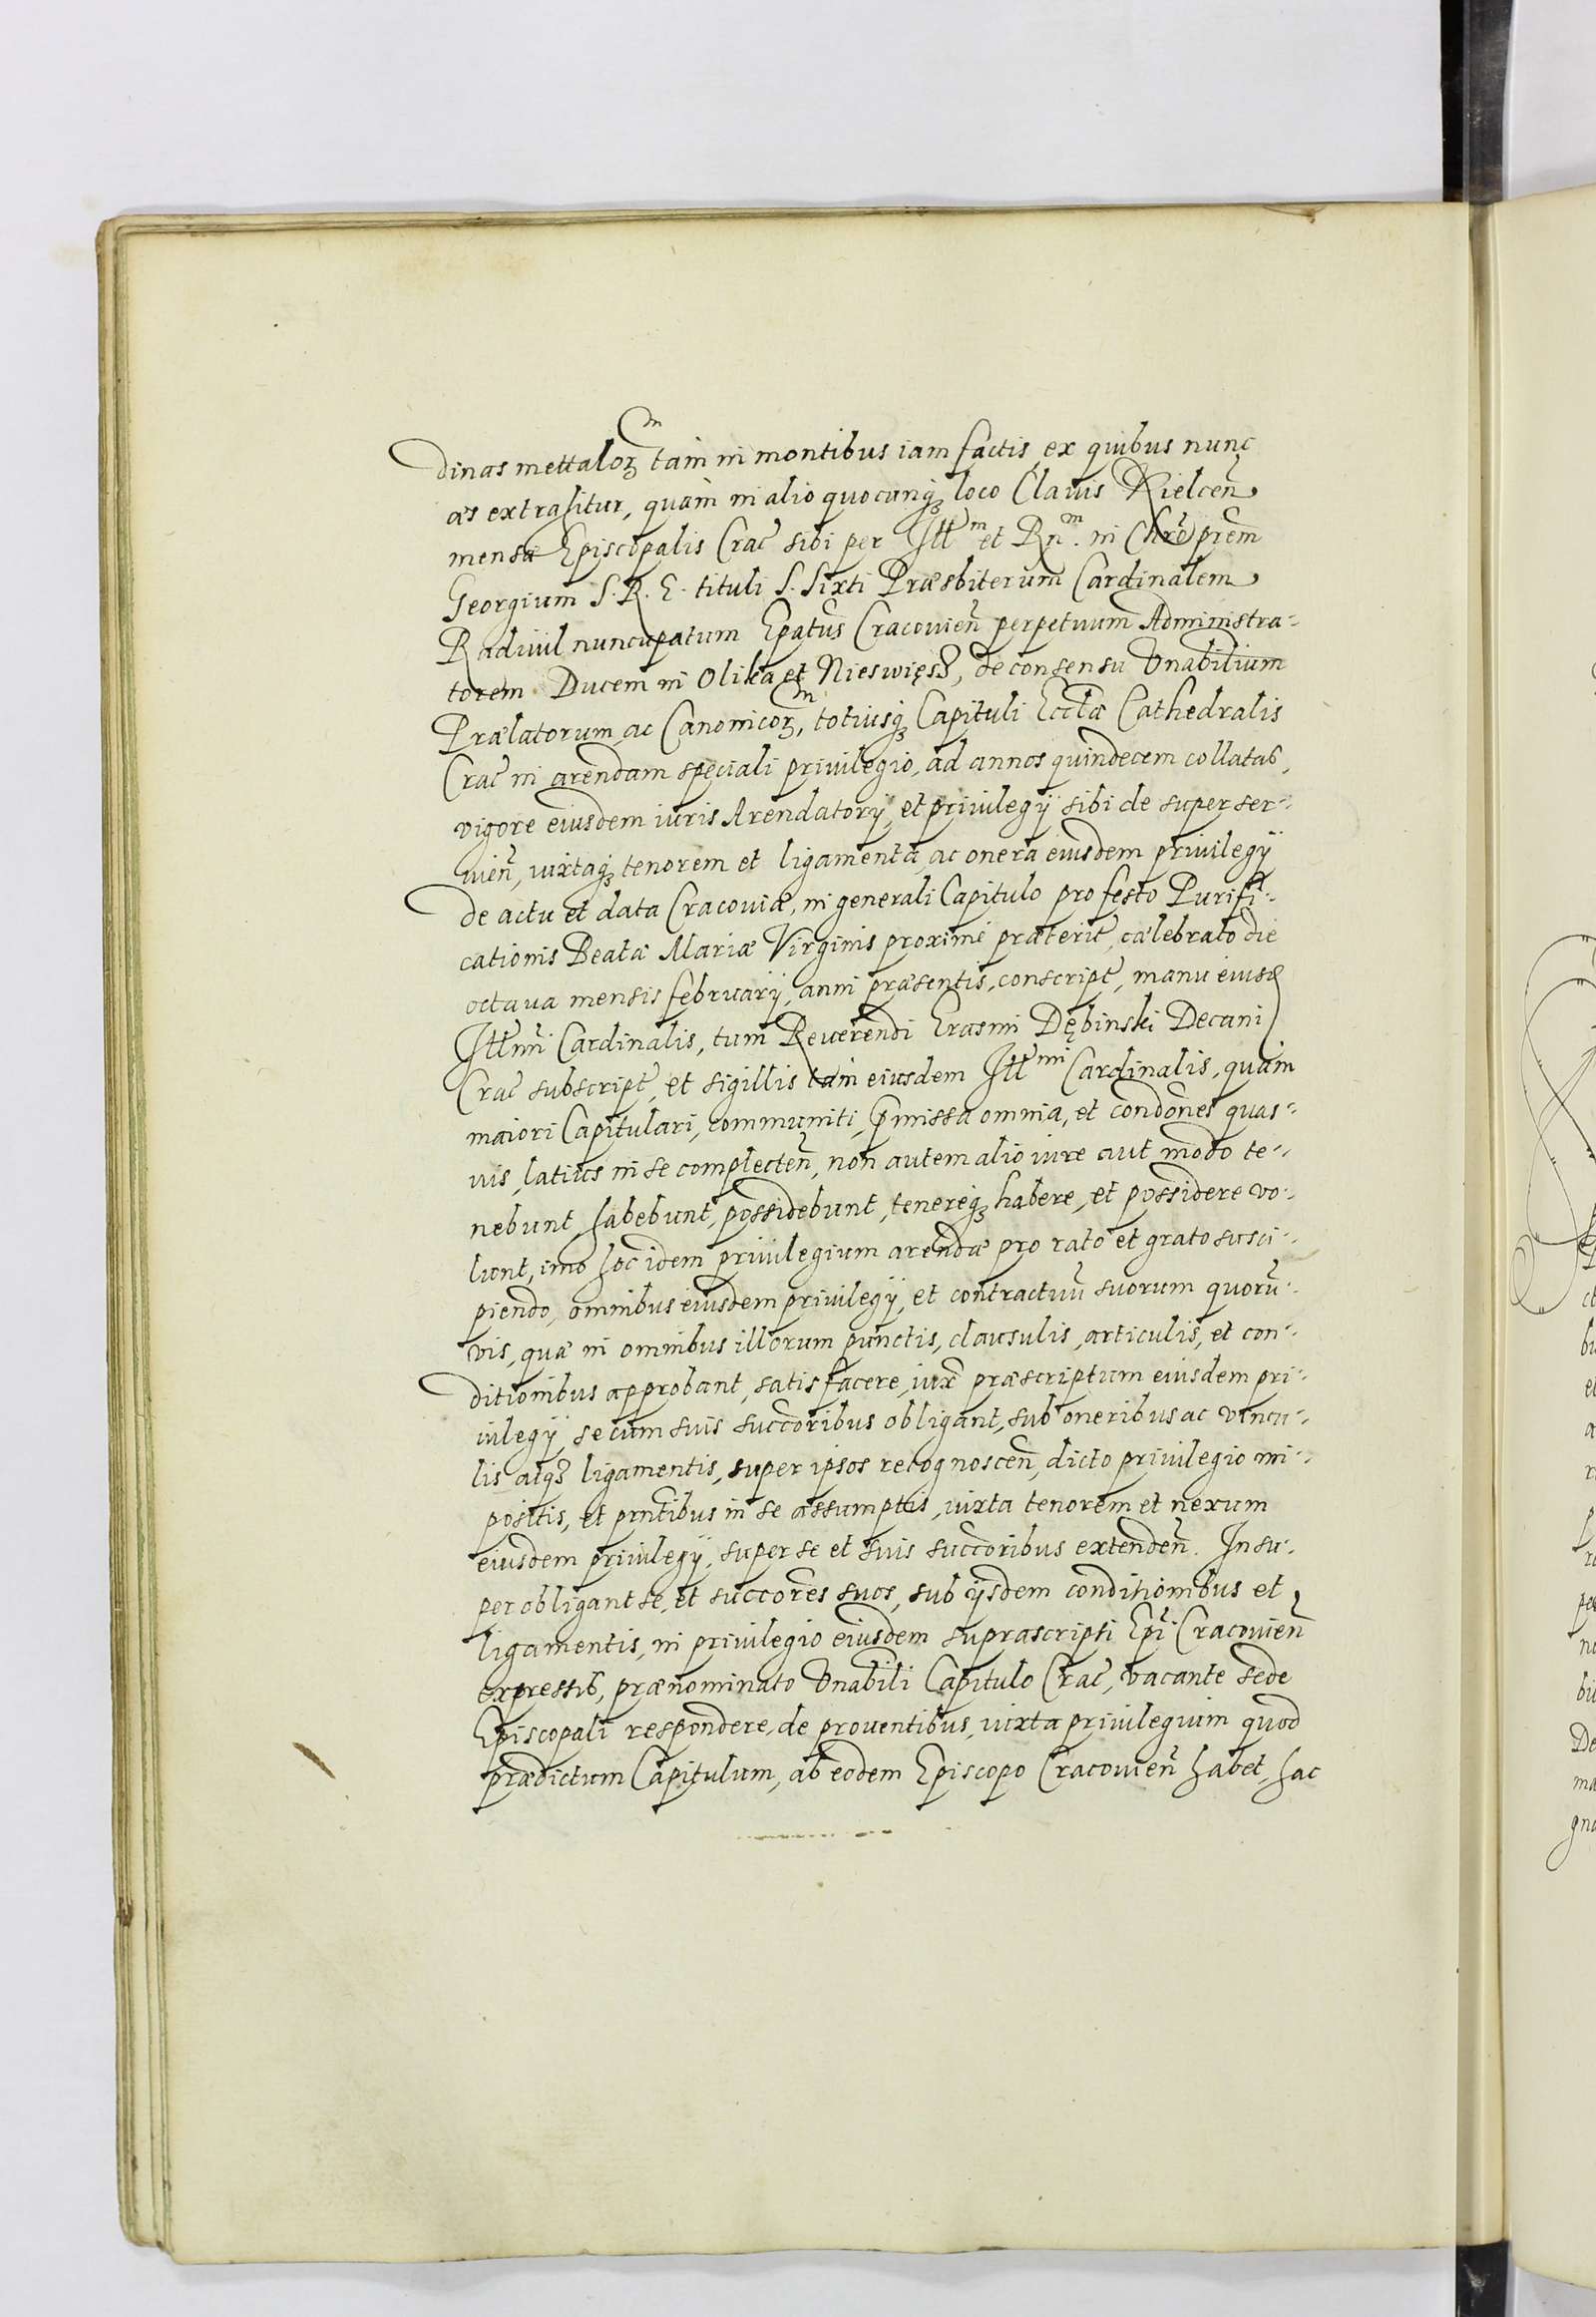 dinas mettaloꝝ tam in montibus iam factis, ex quibus nunc
æs extrahitur, quàm in alio quocunqꝫ loco Clavis Kielceñ
mensæ Episcopalis Crac̃ sibi per Illm et Rñm. in Chrõ prẽm
Georgium S. R. E. tituli S. Sixti Præsbiterum Cardinalem
Radivil nuncupatum Epatus Cracovieñ perpetuum Administra-
torem Ducem in Olika et Nieswięz, de consensu Vnabilium
Prælatorum ac Canonicoꝝ, totiusqꝫ Capituli Eccłæ Cathedralis
Crac̃ in arendam speciali privilegio, ad annos quindecem collatas,
vigore eiusdem iuris Arendatorij, et privilegij sibi de super ser-
vieñ, iuxtaqꝫ tenorem et ligamenta, ac onera eiusdem privilegij
de actu et data Cracoviæ, in generali Capitulo pro festo Purifi-
cationis Beatæ Mariæ Virginis proximè præterit̃, cælebrato die
octava mensis februarij, anni præsentis, conscript̃, manu eiusd
Illmi Cardinalis, tum Reverendi Erasmi Dębinski Decani
Crac̃ subscript̃, et sigillis tam eiusdem Illmi Cardinalis, quàm
maiori Capitulari, communiti, p̃missa omnia, et condõnes quas-
vis, latius in se complecteñ, non autem alio iure aut modo te-
nebunt, habebunt, possidebunt, tenereqꝫ habere, et possidere vo-
lunt, imo hoc idem privilegium arendæ pro rato et grato susci-
piendo, omnibus eiusdem privilegij, et contractuũ suorum quorũ-
vis, quæ in omnibus illorum punctis, clausulis, articulis, et con-
ditionibus approbant, satis facere, iux̃ præscriptum eiusdem pri-
vilegij, se cum suis succõribus obligant, sub oneribus ac vincu-
lis atqꝫ ligamentis, super ipsos recognosceñ, dicto privilegio im-
positis, et pñtibus in se assumptis, iuxta tenorem et nexum
eiusdem privilegij, super se et suis succõribus extendeñ. Insu-
per obligant se, et succores suos, sub ijsdem conditionibus et
ligamentis, in privilegio eiusdem suprascripti Epĩ Cracovieñ
expressis, prænominato Vnabili Capitulo Crac̃, vacante sede
Episcopali respondere, de proventibus, iuxta privilegium quod
prædictum Capitulum, ab eodem Episcopo Cracovieñ habet, hac